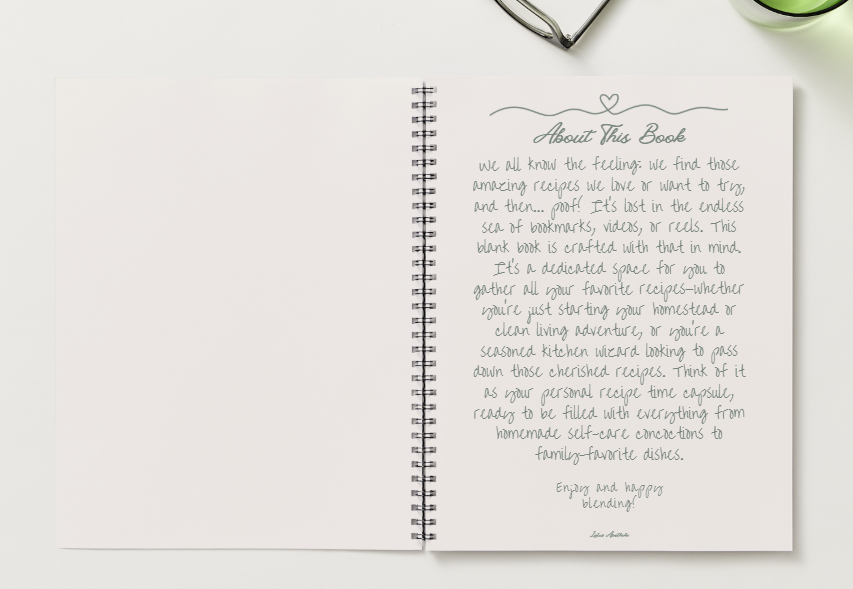 About This Book
We all know the feeling: we find those
amazing recipes we love or want to try,
and then... poof! It's lost in the endless
sea of bookmarks, videos, or reels. This
blank book is crafted with that in mind.
It's a dedicated space for you to
gather all your favorite recipes—whether
you're just starting your homestead or
clean living adventure, or you're a
seasoned kitchen wizard looking to pass
down those cherished recipes. Think of it
as your personal recipe time capsule,
ready to be filled with everything from
homemade self-care concoctions to
family-favorite dishes.
Enjoy and happy
blending!